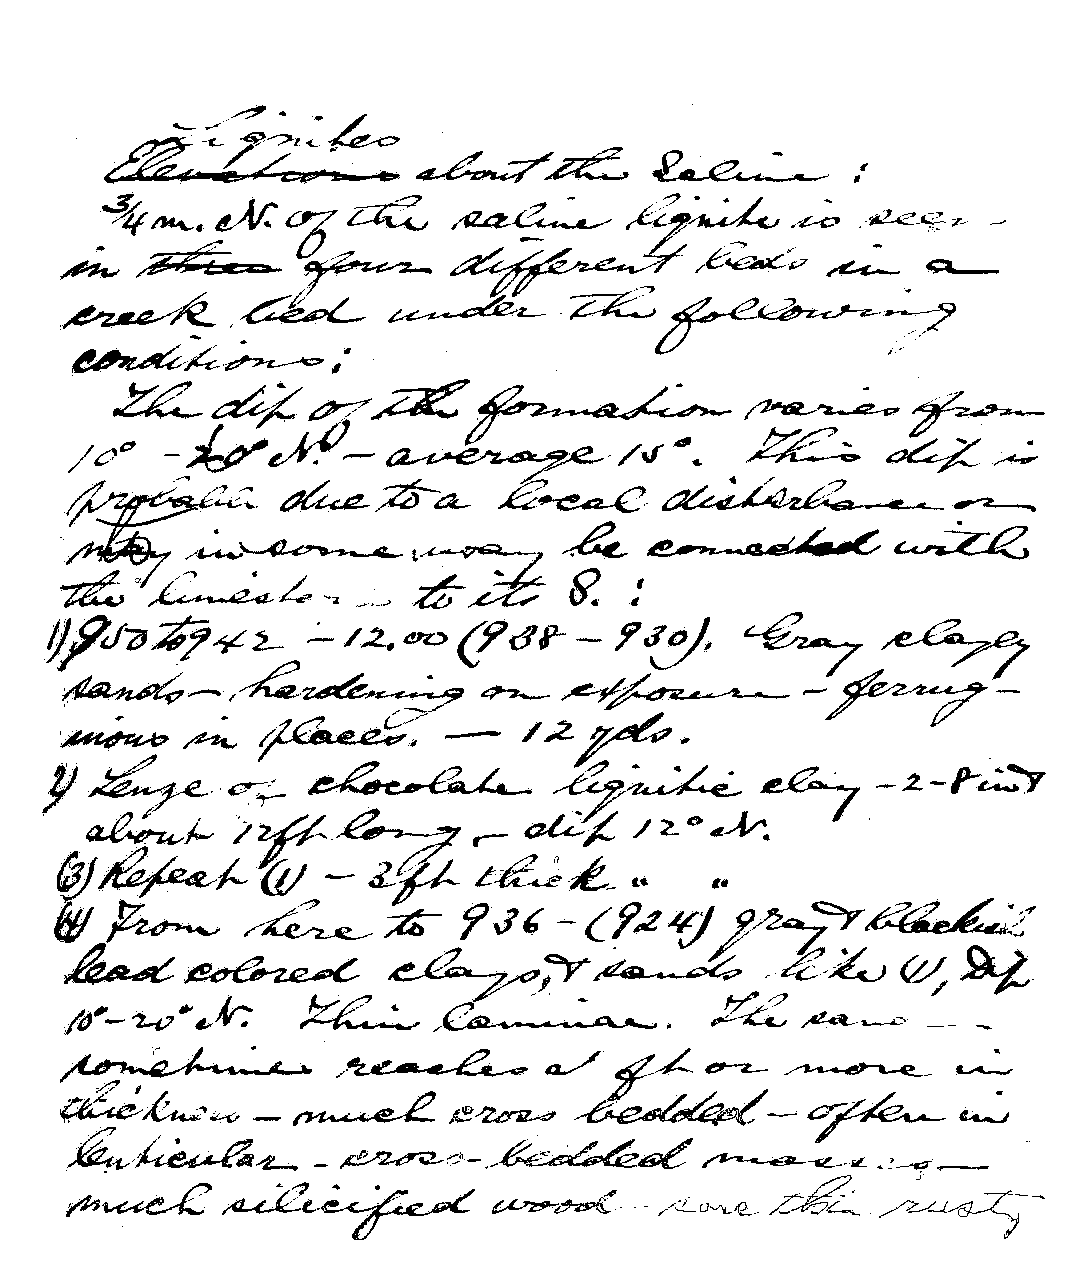 Lignites
Elevations about the Saline :
3/4 m. N. of the saline lignite is seen
in three four different beds in a
creek bed under the following
conditions:
The dip of the formation varies from
10° - 20° N. - average 15°. This dip is
probably due to a local disturbance or
may in some way be connected with
the limestone to its S. :
1) 950 to 942 - 12.00 (938 - 930). Gray clayey
sands - hardening on exposure - ferrug-
inous in places. - 12 yds.
2) Lenze of chocolate lignitic clay - 2-8 in &
about 12 ft long - dip 12° N.
(3) Repeat (1) - 3 ft thick " "
(4) From here to 936 - (924) gray & blackish
lead colored clays, & sands like (1), Dip
10°-20° N. Thin laminae. The sand
sometimes reaches a ft or more in
thickness - much cross bedded - often in
lenticular - cross-bedded masses -
much silicified wood - thin rusty